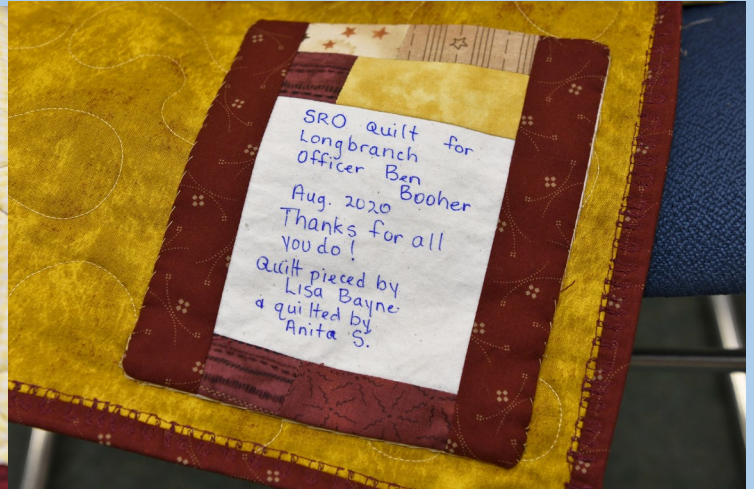 SRO Quilt for
Longbranch
Officer Ben
Booher
Aug. 2020
Thanks for all
you do!
Quilt pieced by
Lisa Bayne
& quilted by
Anita S.